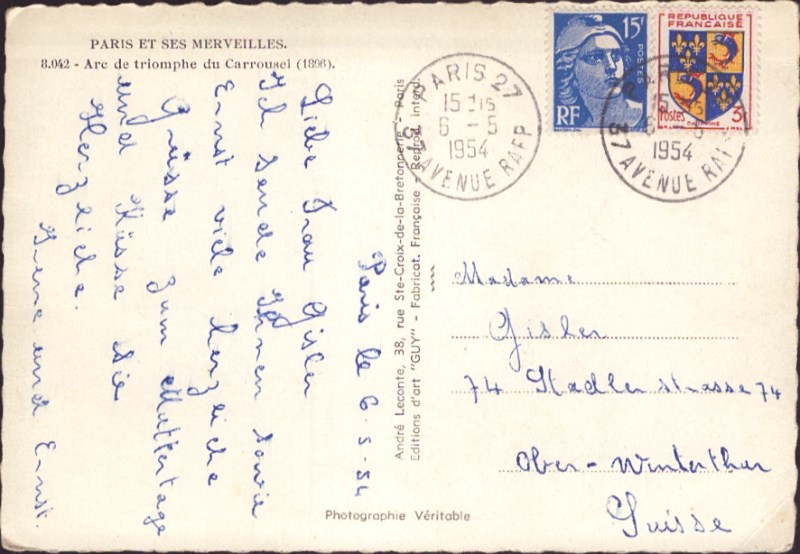 PARIS ET SES MERVEILLES.
8.042 - Arc de triomphe du Carrousel (1896).
Paris le 6-5-54
Liebe Frau Gisler
Ich sende Ihnen sowie
Ernst viele herzliche
Grüsse zum Muttertage
und Küsse Sie
Herzliche.
und Ernst.
André Leconte, 38, rue Ste-Croix-de-la-Bretonnerie - Paris
Editions d'art "GUY" - Fabricat. Française - Reprod. interd.
15F
POSTES
RF
REPUBLIQUE
FRANÇAISE
Postes
3F
PARIS 27
15H15
6-5
1954
37 AVENUE RAPP
PARIS
15
6-5
1954
37 AVENUE RAPP
Madame
Gisler
74 Stadlerstrasse 74
Ober-Winterthur
Suisse
Photographie Véritable